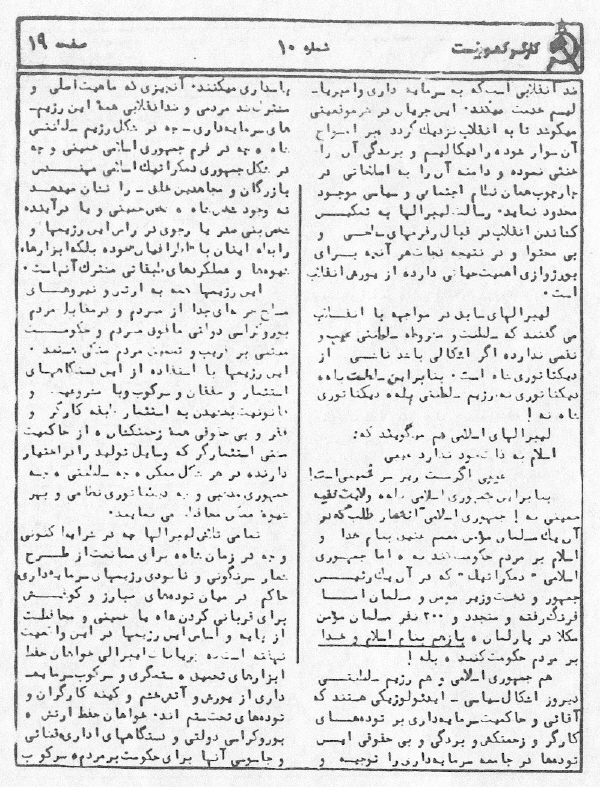 کارگر کمونیست
شماره ۱۰
صفحه ۱۹
ضد انقلابی است که به سرمایه داری و امپریا-
لیسم خدمت میکنند. این جریان در هر موقعیتی
میکوشد تا به انقلاب نزدیک گردد بر امواج
آن سوار شود و رادیکالیسم و برندگی آن را
خنثی نموده و دامنه آن را به اصلاحاتی در
چارچوب همان نظام اجتماعی و سیاسی موجود
محدود نماید. رسالت لیبرالها به تمکین
کشاندن انقلاب در قبال رفرمهای سطحی و
بی محتوا و در نتیجه نجات هر آنچه برای
بورژوازی اهمیت حیاتی دارد از یورش انقلاب
است.
لیبرالهای سابق در مواجهه با انقلاب
می گفتند که سلطنت و مشروطه سلطنتی عیب و
نقصی ندارد، اگر اشکالی باشد ناشی از
دیکتاتوری شاه است. بنابراین سلطنت بله
دیکتاتوری نه، رژیم سلطنتی بله دیکتاتوری
شاه نه!
لیبرالهای اسلامی هم میگویند که:
اسلام به ذات خود ندارد عیبی
عیبی اگر هست رهبر خمینی است!
بنابراین جمهوری اسلامی بله، ولایت فقیه
خمینی نه! جمهوری اسلامی انحصار طلب که در
آن یک مسلمان مؤمن معمم بنام خدا و
اسلام بر مردم حکومت کند نه، اما جمهوری
اسلامی "دمکراتیک" که در آن یک رئیس
جمهور و نخست وزیر مؤمن و مسلمان اما
فرنگ رفته و متجدد و ۲۰۰ نفر مسلمان مؤمن
مکلا در پارلمان، بازهم بنام اسلام و خدا
بر مردم حکومت کنند، بله!
هم جمهوری اسلامی و هم رژیم سلطنتی
دیروز اشکال سیاسی - ایدئولوژیکی هستند که
آقائی و حاکمیت سرمایه داری بر توده های
کارگر و زحمتکش و بردگی و بی حقوقی این
توده ها در جامعه سرمایه داری را توجیه و
پاسداری میکنند. آنچیزی که ماهیت اصلی و
مشترک ضد مردمی و ضد انقلابی همه این رژیم-
های سرمایه داری - چه در شکل رژیم سلطنتی
شاه، چه در فرم جمهوری اسلامی خمینی و چه
در شکل جمهوری دمکراتیک اسلامی مهندس
بازرگان و مجاهدین خلق - را نشان میدهد
نه وجود شخص شاه، شخص خمینی و یا در آینده
شخص بنی صدر یا رجوی در راس این رژیمها و
رابطه ایشان با اطرافیان خود، بلکه ابزارها،
شیوه ها و عملکردهای طبقاتی مشترک آنهاست.
این رژیمها همه به ارتش و نیروهای
مسلح حرفه ای جدا از مردم و در مقابل مردم
بوروکراسی دولتی مافوق مردم و حکومت
مبتنی بر فریب و تحمیق مردم متکی هستند.
این رژیمها با استفاده از این دستگاههای
استثمار و خفقان و سرکوب و با مشروعیت و
قانونیت بخشیدن به استثمار طبقه کارگر و
فقر و بی حقوقی همه زحمتکشان، از حاکمیت
طبقه استثمارگر که وسایل تولید را در اختیار
دارند، در هر شکل ممکن، چه سلطنتی، چه
جمهوری مذهبی و چه دیکتاتوری نظامی و بهر
شیوه ممکن محافظت می نمایند.
تمامی تلاش لیبرالها چه در شرایط کنونی
و چه در زمان شاه، برای ممانعت از طرح
شعار سرنگونی و نابودی رژیمهای سرمایه داری
حاکم در میان توده های مبارز و کوشش
برای قربانی کردن شاه یا خمینی و محافظت
از پایه و اساس این رژیمها در این واقعیت
نهفته است، جریانات لیبرالی خواهان حفظ
ابزارهای تحمیق، ستمگری و سرکوب سرمایه-
داری از یورش و آتش خشم و کینه کارگران و
توده های تحت ستم اند. خواهان حفظ ارتش،
بوروکراسی دولتی و دستگاههای اداری، قضائی
و جاسوسی آنها برای حکومت بر مردم، سرکوب